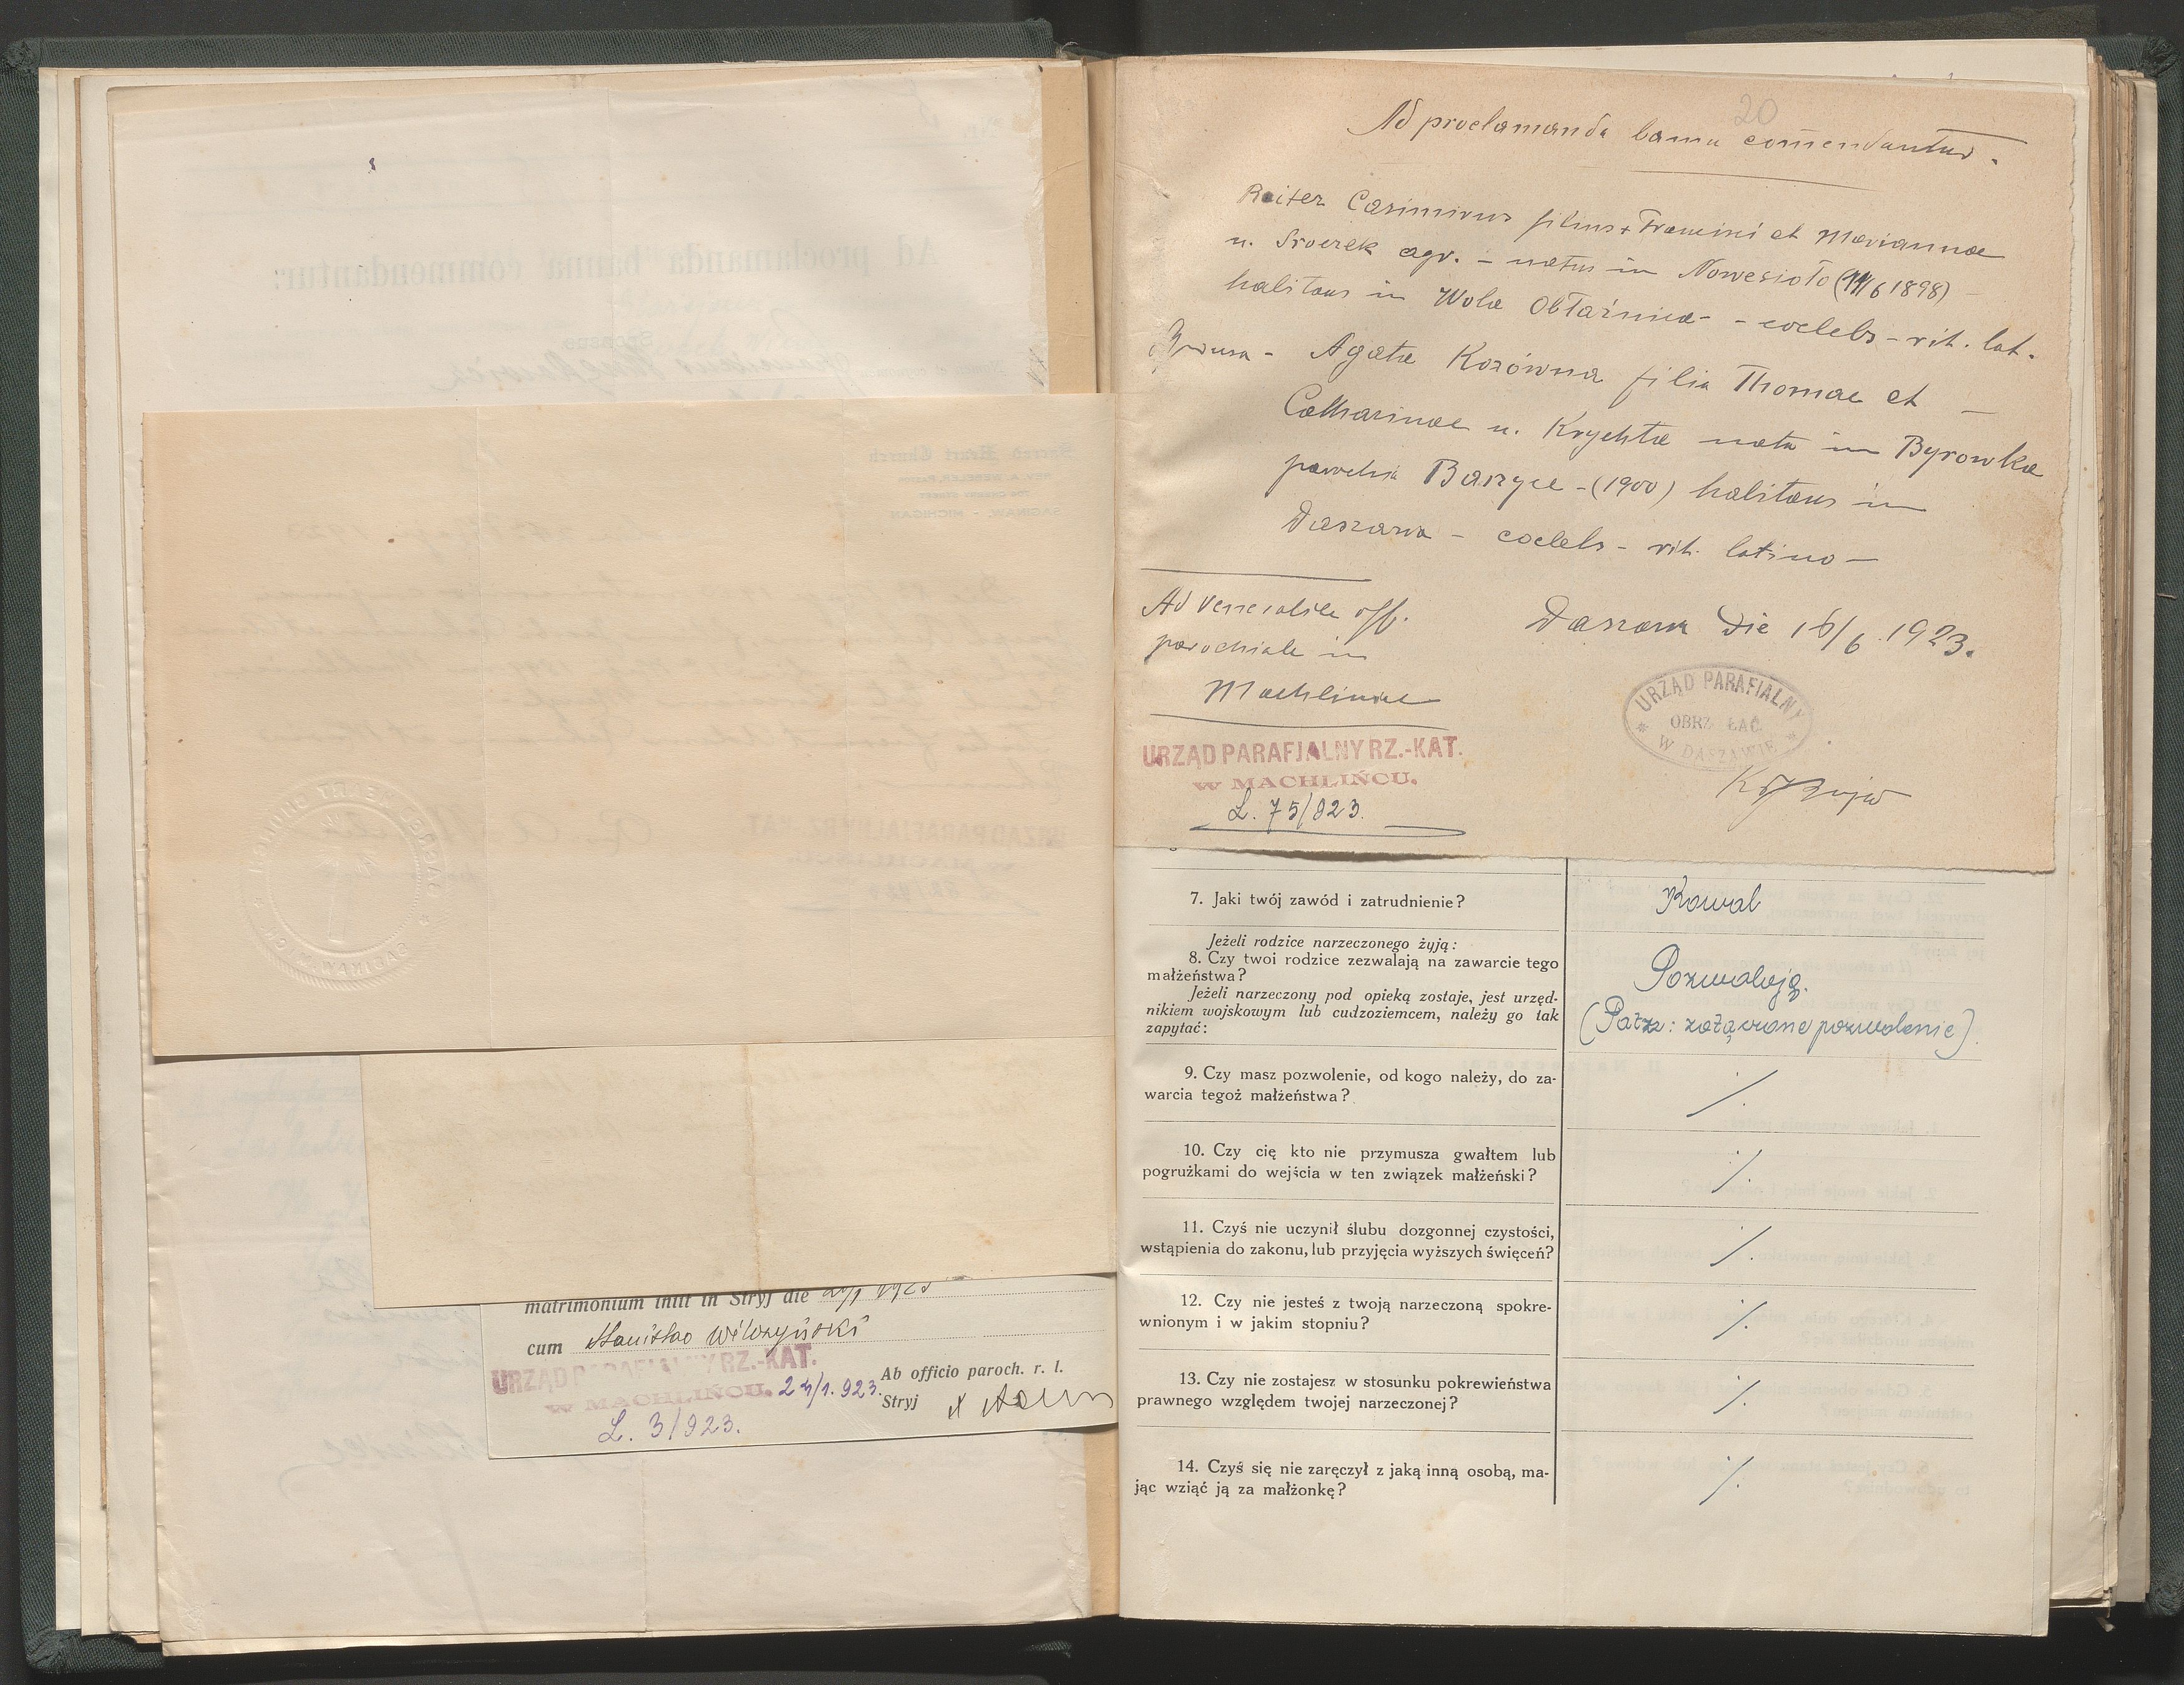 matrimonium iniit in Stryj die
cum Stanislao Wilczyński
URZĄD PARAFJALNY RZ.-KAT.
W MACHLIŃCU. 24/1. 923.
L. 3/923.
Ab officio paroch. r. l.
Stryj
20
Ad proclamanda banna comendantur.
Reiter Casimirus filius + Francisci et Mariannae
n. agr. - natus in Nowesioło (11/6 1898) -
habitans in Wola Obłaźnica - coelebs - rit. lat.
Agata Kozówna filia Thomae et -
Catharinae n. Krychta nata in Byrowka
Baryce - (1900) habitans in
Daszawa - coelebs - rit. latino -
Ad venerabile off.
parochiale in
Machliniec
Daszawa die 16/6 1923.
URZĄD PARAFIALNY
OBRZ. ŁAC.
W DASZAWIE
URZĄD PARAFJALNY RZ.-KAT.
W MACHLIŃCU.
L. 75/923.
7. Jaki twój zawód i zatrudnienie?
Kowal
Jeżeli rodzice narzeczonego żyją:
8. Czy twoi rodzice zezwalają na zawarcie tego
małżeństwa?
Pozwalają.
Jeżeli narzeczony pod opieką zostaje, jest urzęd-
nikiem wojskowym lub cudzoziemcem, należy go tak
zapytać:
(Patrz: załączone pozwolenie).
9. Czy masz pozwolenie, od kogo należy, do za-
warcia tegoż małżeństwa?
·/.
10. Czy cię kto nie przymusza gwałtem lub
pogrużkami do wejścia w ten związek małżeński?
·/.
11. Czyś nie uczynił ślubu dozgonnej czystości,
wstąpienia do zakonu, lub przyjęcia wyższych święceń?
·/.
12. Czy nie jesteś z twoją narzeczoną spokre-
wnionym i w jakim stopniu?
·/.
13. Czy nie zostajesz w stosunku pokrewieństwa
prawnego względem twojej narzeczonej?
·/.
14. Czyś się nie zaręczył z jaką inną osobą, ma-
jąc wziąć ją za małżonkę?
·/.